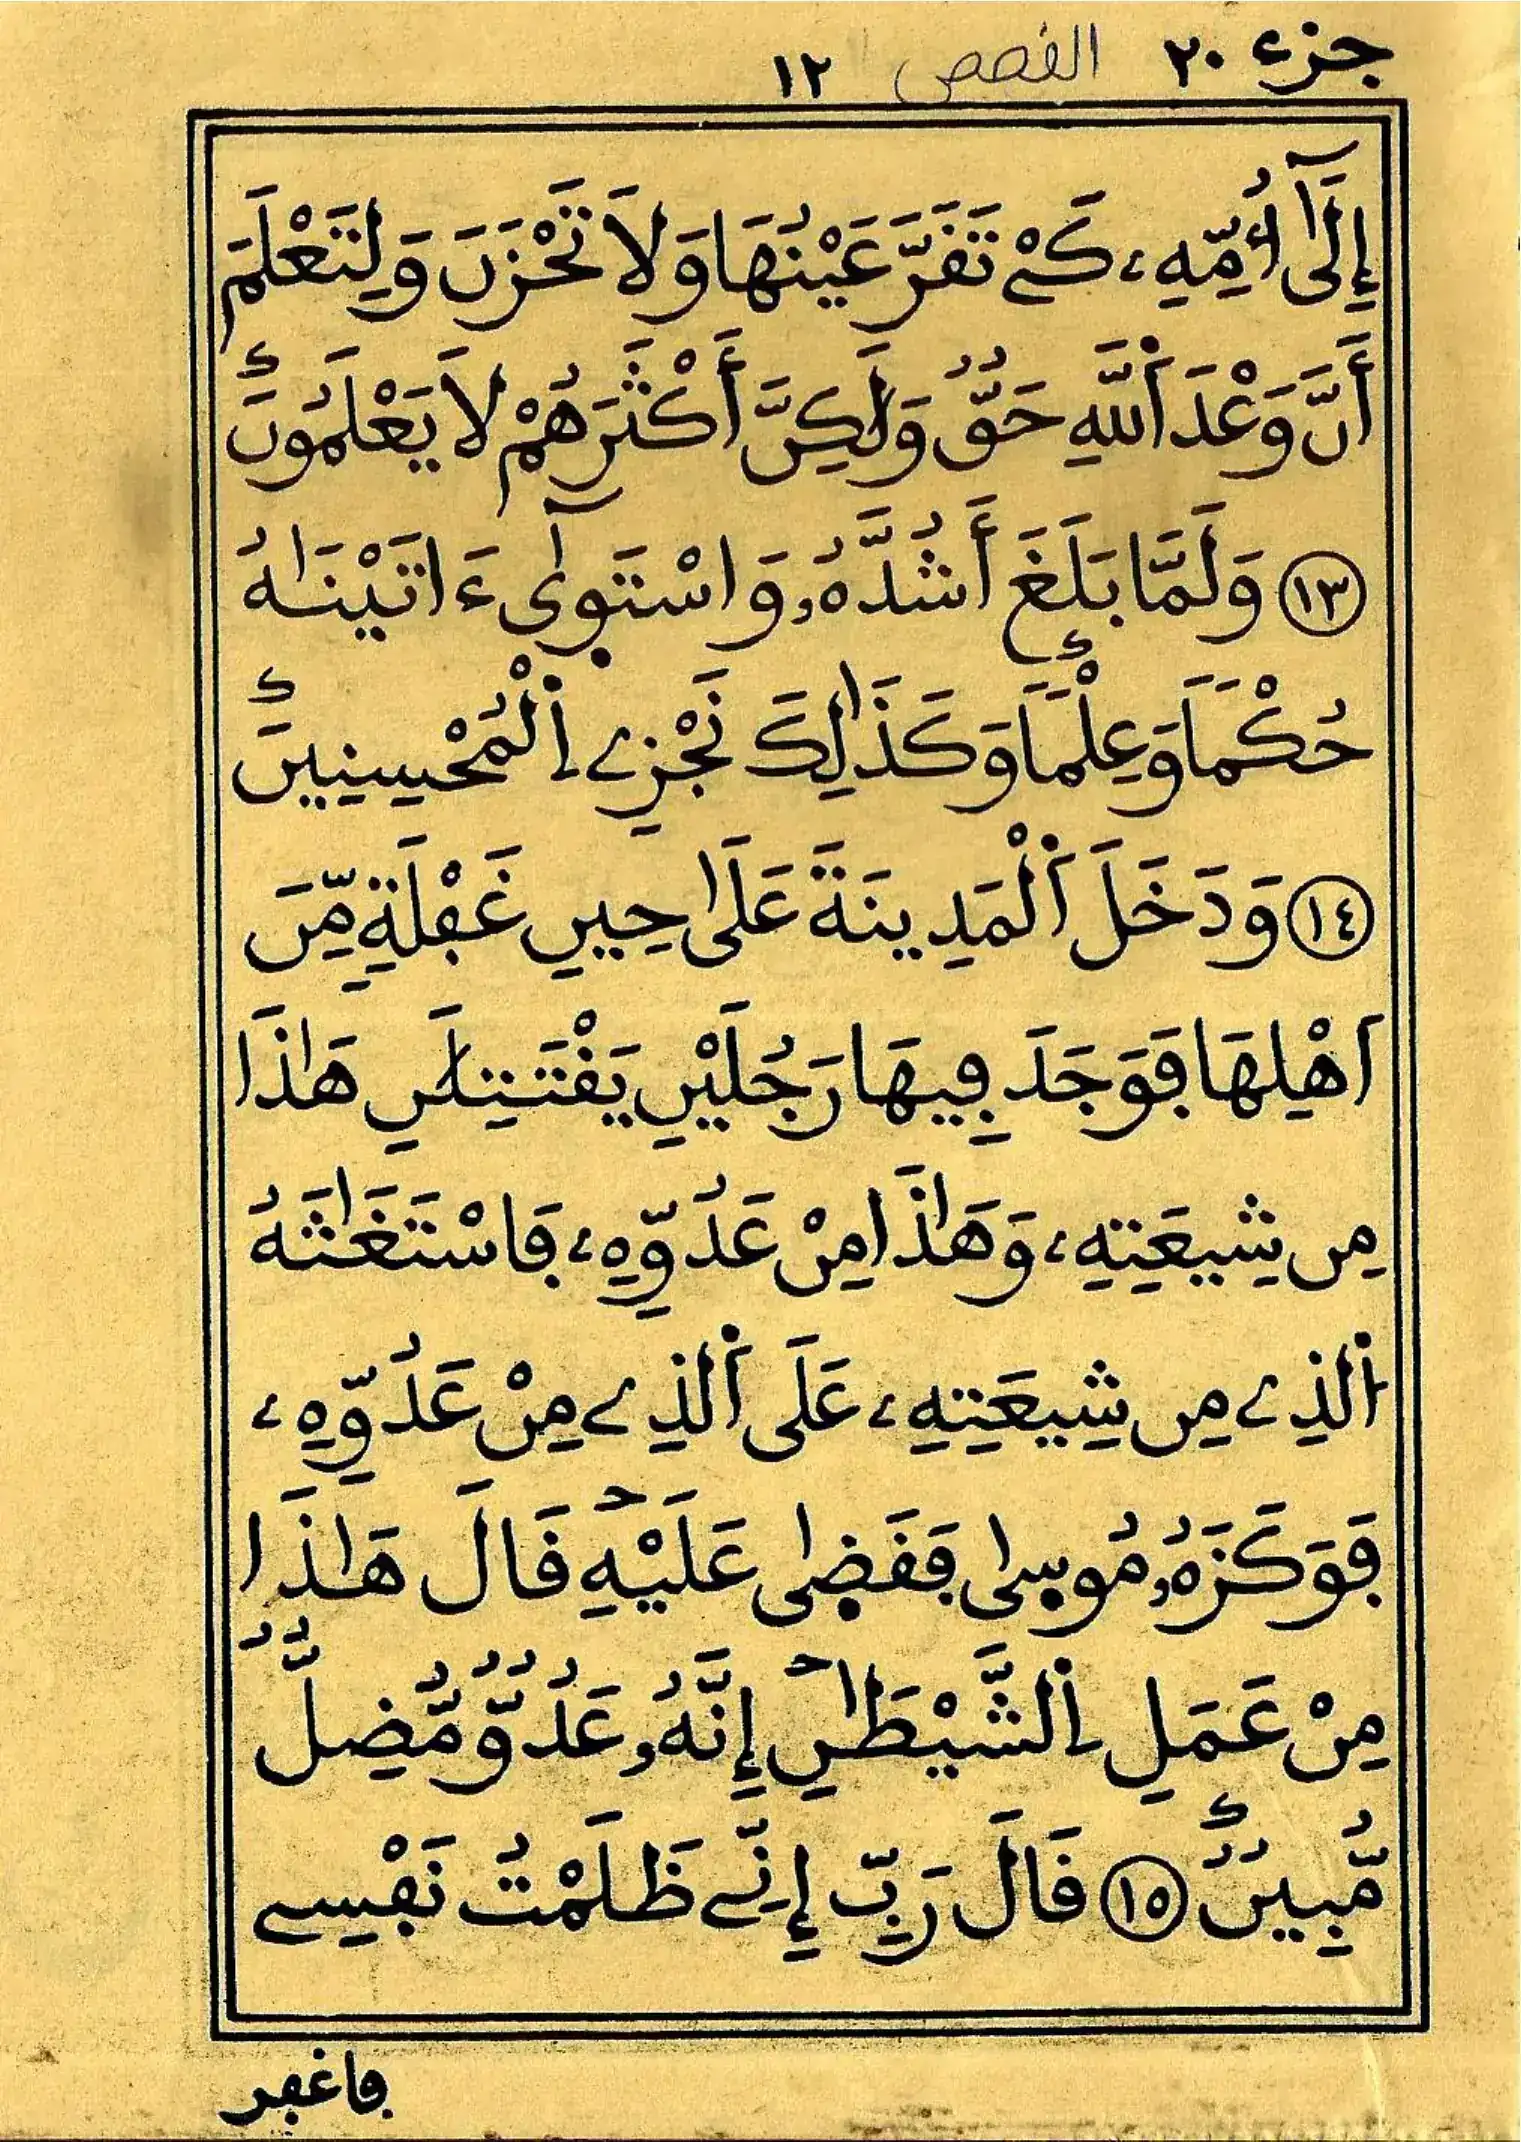 جزء ٢٠ القصص ١٢
إِلَىٰٓ أُمِّهِۦ كَےْ تَقَرَّ عَيْنُهَا وَلَا تَحْزَنَ وَلِتَعْلَمَ
أَنَّ وَعْدَ اَ۬للَّهِ حَقٌّ وَلَٰكِنَّ أَكْثَرَهُمْ لَا يَعْلَمُونَ
١٣ وَلَمَّا بَلَغَ أَشُدَّهُۥ وَاسْتَوٜىٰٓ ءَاتَيْنَٰهُ
حُكْماً وَعِلْماً وَكَذَٰلِكَ نَجْزِے اِ۬لْمُحْسِنِينَ
١٤ وَدَخَلَ اَ۬لْمَدِينَةَ عَلَىٰ حِينِ غَفْلَةٍ مِّنَ
اَهْلِهَا فَوَجَدَ فِيهَا رَجُلَيْنِ يَقْتَتِلَٰنِ هَٰذَا
مِن شِيعَتِهِۦ وَهَٰذَا مِنْ عَدُوِّهِۦ فَاسْتَغَٰثَهُ
اُ۬لذِے مِن شِيعَتِهِۦ عَلَى اَ۬لذِے مِنْ عَدُوِّهِۦ
فَوَكَزَهُۥ مُوسٜىٰ فَقَضٜىٰ عَلَيْهِ قَالَ هَٰذَا
مِنْ عَمَلِ اِ۬لشَّيْطَٰنِ إِنَّهُۥ عَدُوٌّ مُّضِلٌّ
مُّبِينٌ ١٥ قَالَ رَبِّ إِنِّے ظَلَمْتُ نَفْسِے
فاغفر